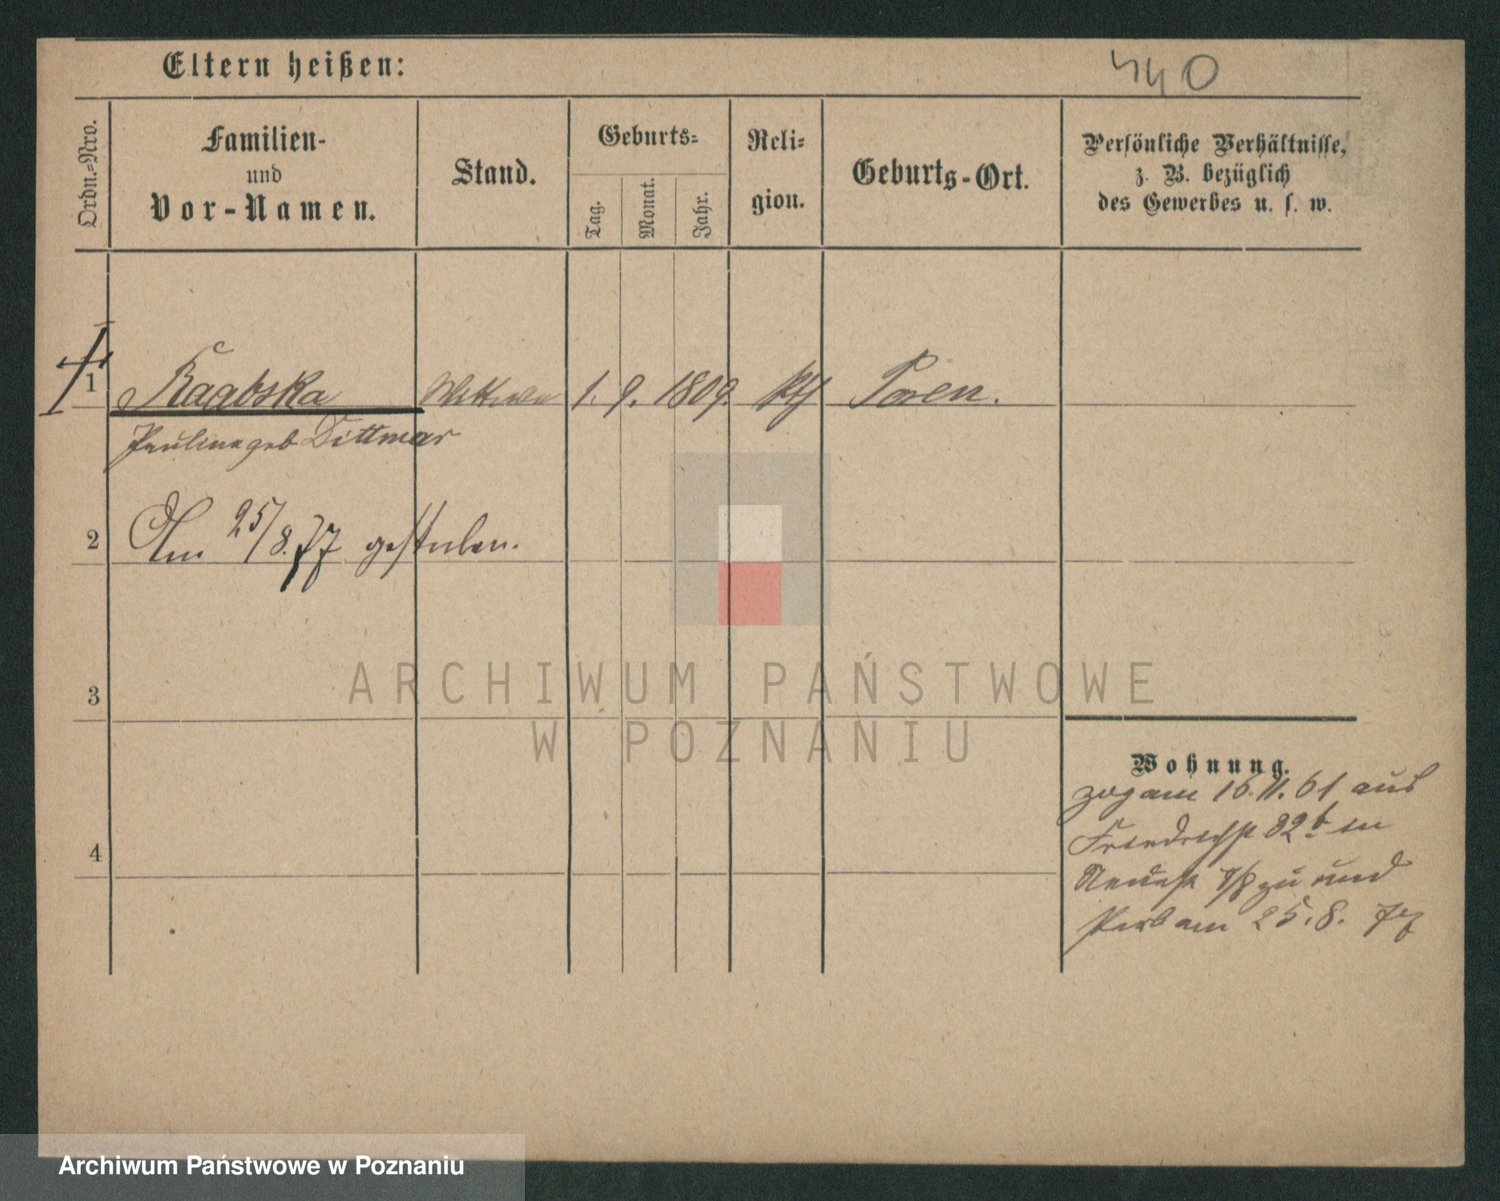 Eltern heißen:
440
Ordn.-Nro.
Familien-
und
Vor-Namen.
Stand.
Geburts-
Tag.
Monat.
Jahr.
Reli-
gion.
Geburts-Ort.
Persönliche Verhältnisse,
z. B. bezüglich
des Gewerbes u. s. w.
1
Wittwe 1. 9. 1809. kth Posen.
Pauline geb Dittmar
2 Am 25/8. 77 gestorben.
3
4
Wohnung.
zog am 16. 11. 61 aus
Friedrichst 32 b in
Neuest 7/8 zu und
starb am 25. 8. 77
ARCHIWUM PAŃSTWOWE
W POZNANIU
Archiwum Państwowe w Poznaniu